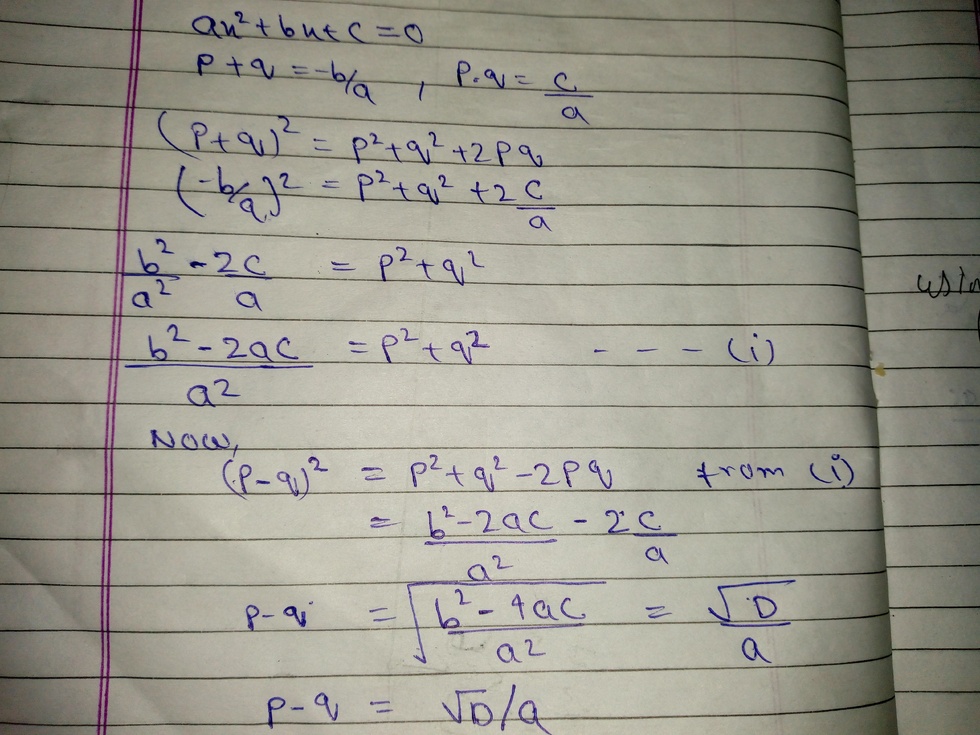 ax²+bx+c=0
p+q=-b/a, p.q=c/a
(p+q)²=p²+q²+2pq
(-b/a)²=p²+q²+2c/a
b²/a²-2c/a=p²+q²
(b²-2ac)/a²=p²+q² ---(i)
Now,
(p-q)²=p²+q²-2pq from (i)
=(b²-2ac)/a²-2c/a
p-q=√((b²-4ac)/a²)=√D/a
p-q=√D/a